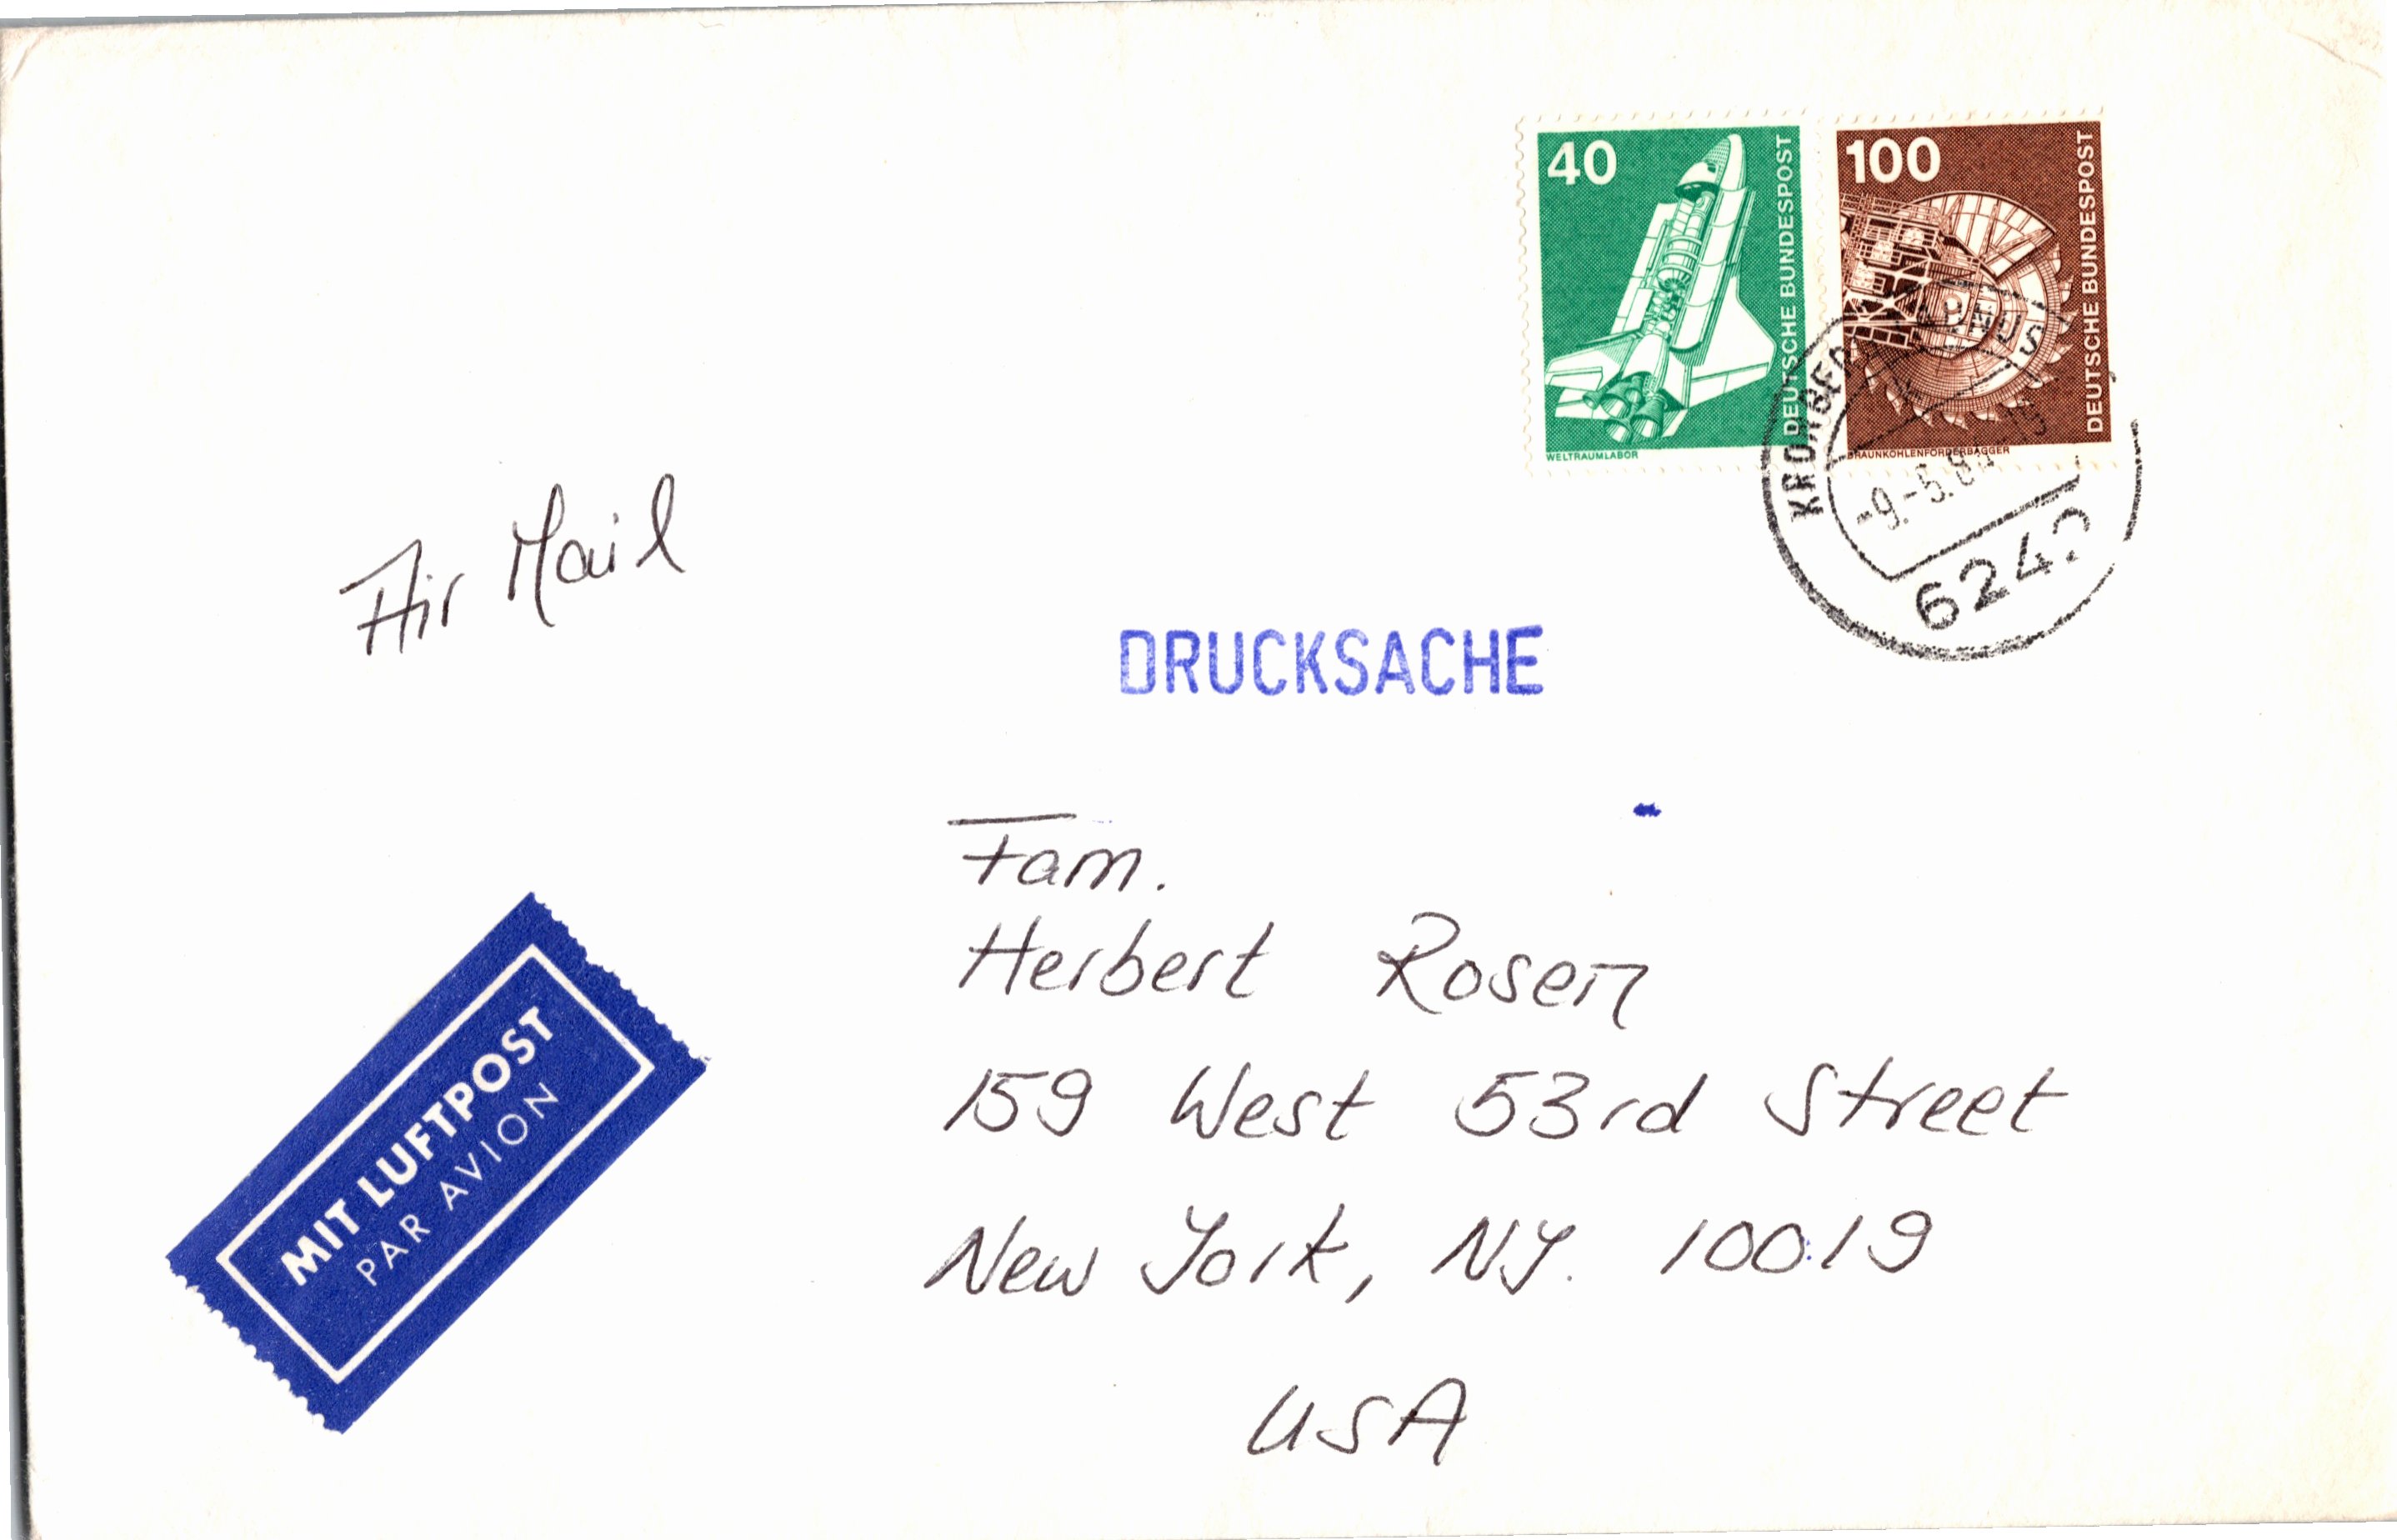 40
DEUTSCHE BUNDESPOST
WELTRAUMLABOR
100
DEUTSCHE BUNDESPOST
BRAUNKOHLENFÖRDERBAGGER
KRONBERG
TAUNUS
-9.-5.8
624
Air Mail
DRUCKSACHE
Fam.
Herbert Rosen
159 West 53rd Street
New York, NY. 10019
USA
MIT LUFTPOST
PAR AVION